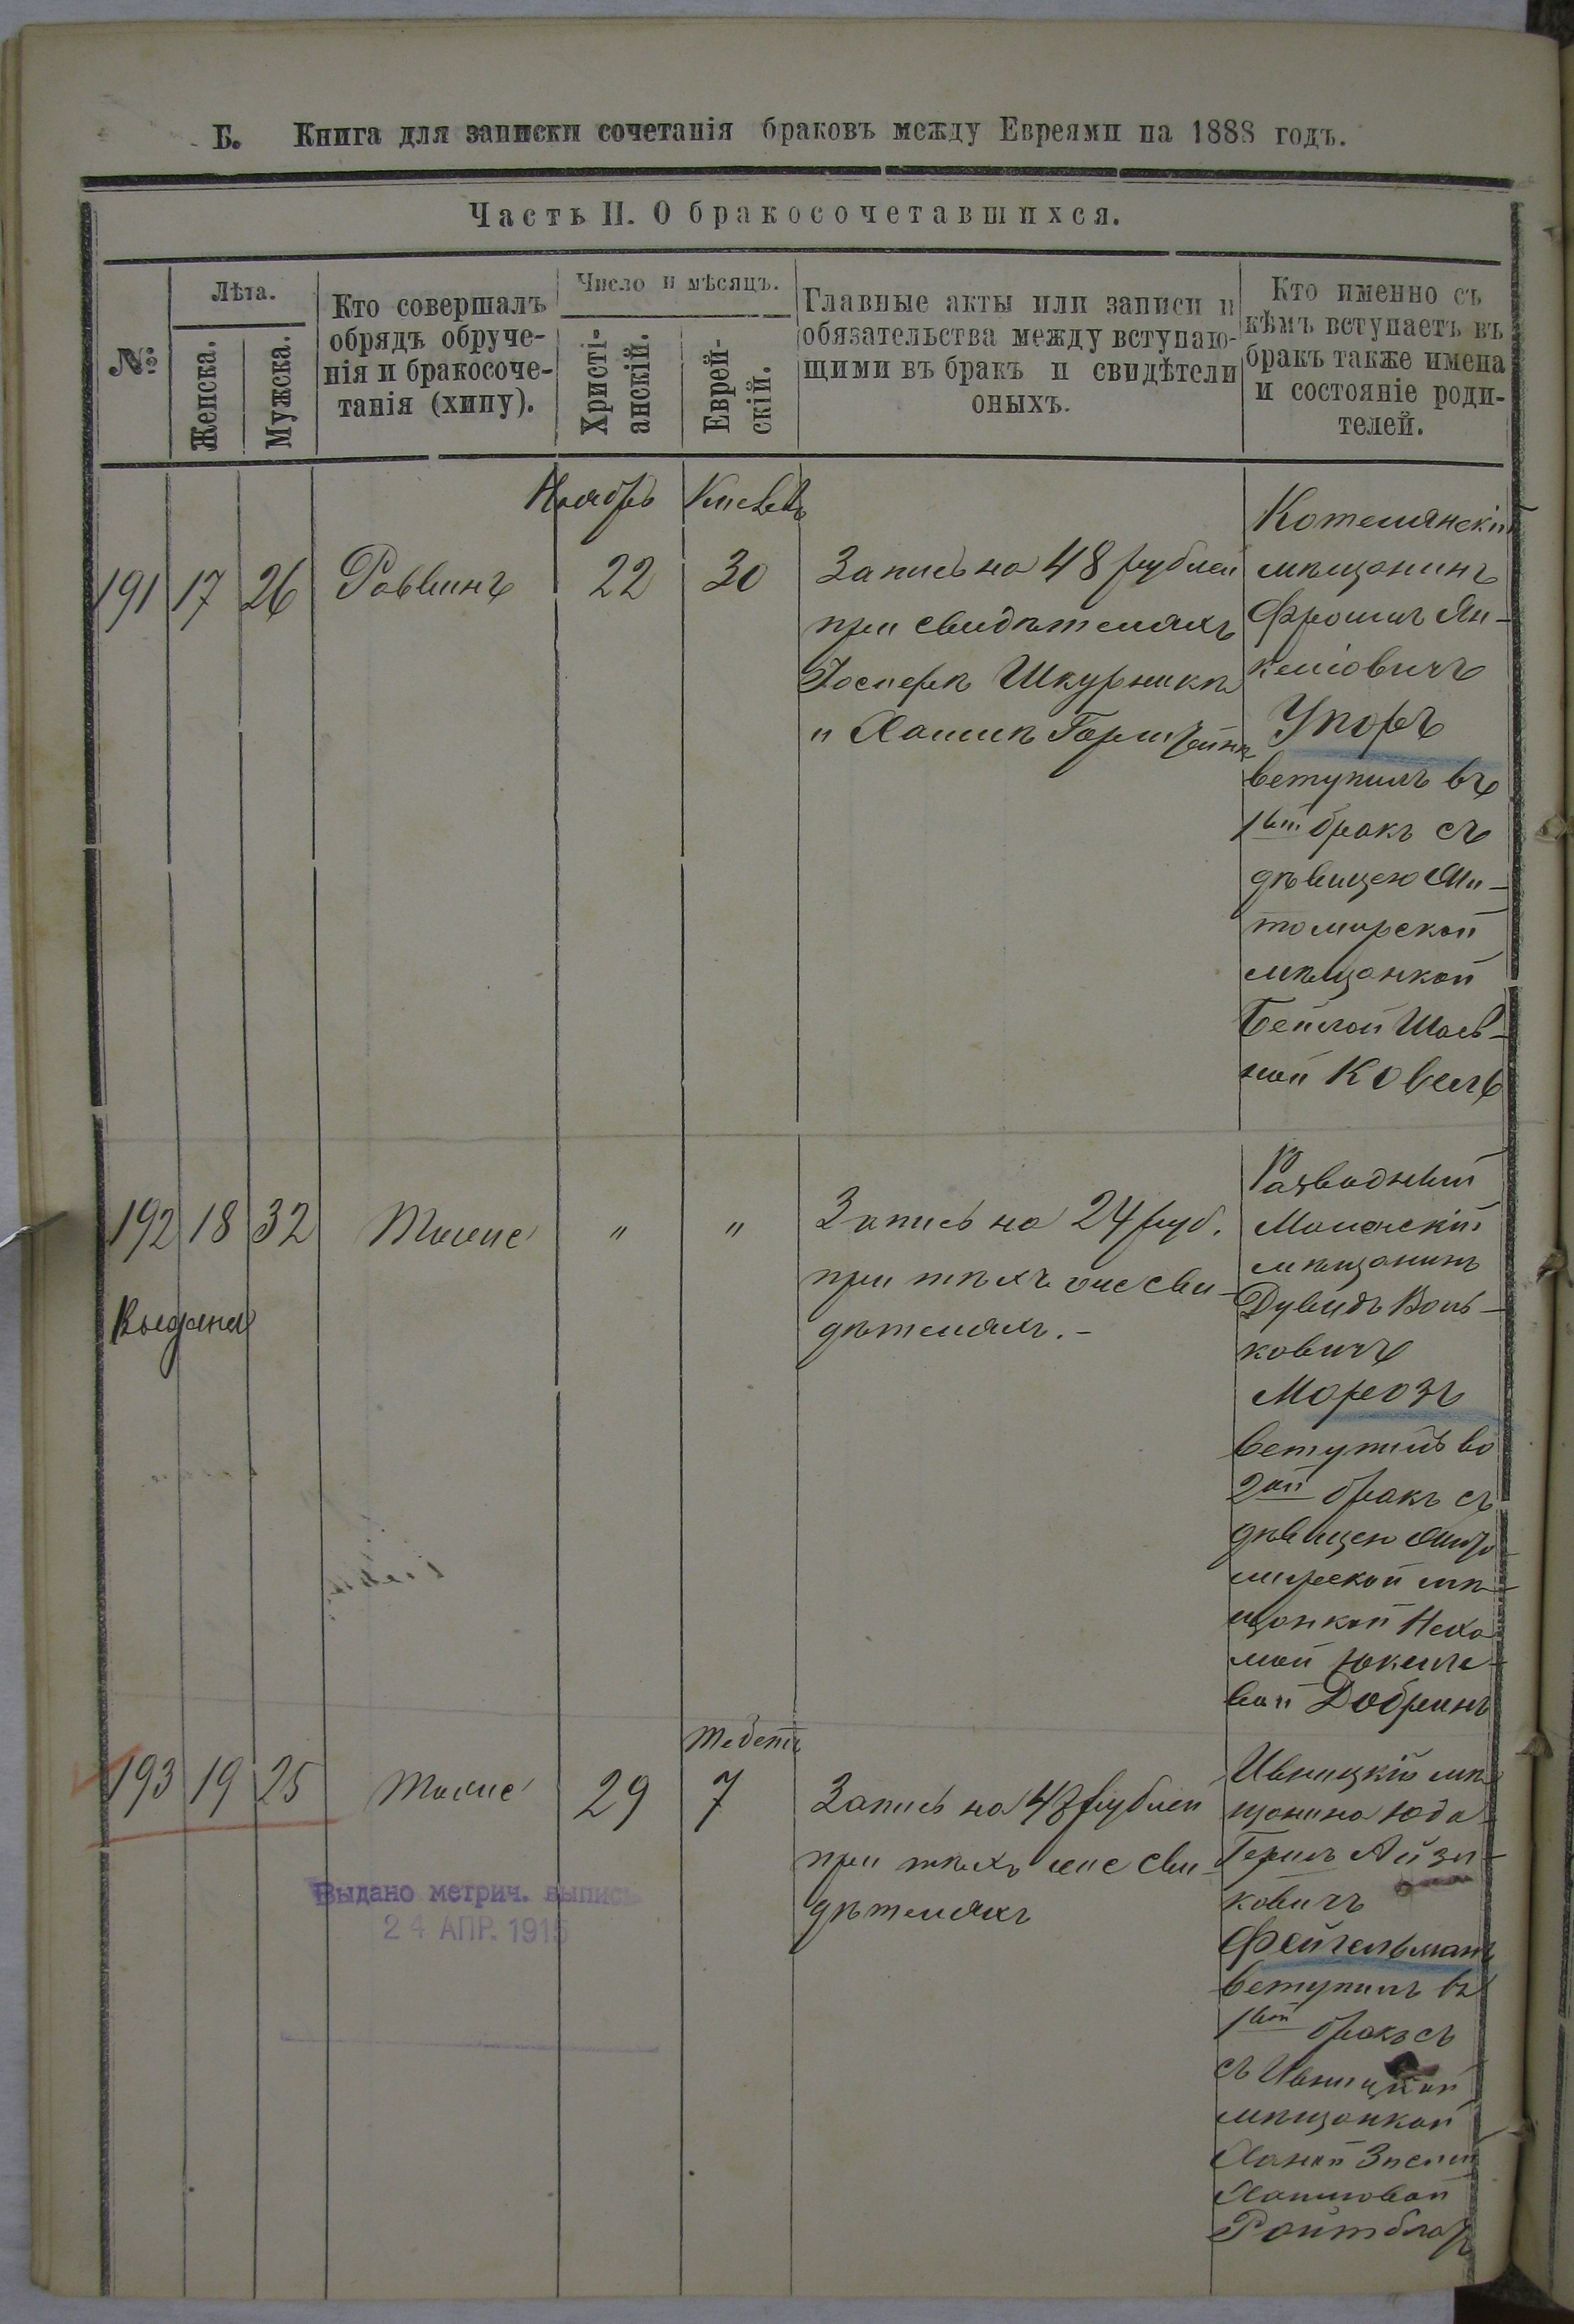 Б. Книга для записки сочетанія браковъ между Евреями на 1888 годъ.
Часть II. О бракосочетавшихся.
№
Лѣта.
Женска.
Мужска.
Кто совершалъ
обрядъ обруче-
нія и бракосоче-
танія (хипу).
Число и мѣсяцъ.
Христі-
анскій.
Еврей-
скій.
Главные акты или записи и
обязательства между вступаю-
щими въ бракъ и свидѣтели
оныхъ.
Кто именно съ
кѣмъ вступаетъ въ
бракъ также имена
и состояніе роди-
телей.
Ноябрь Кислевъ
191 17 26 Раввинъ 22 30
Запись на 48 рублей
при свидѣтеляхъ
Іосифѣ Шкурникѣ
и Хаимѣ
Котелянскій
мѣщанинъ
Фроимъ Ян-
келіовичъ
Упоръ
вступилъ въ
1вый бракъ съ
дѣвицею Жи-
томирской
мѣщанкой
Бейлой Шаев-
ной Ковель
192 18 32 Тоже " "
Выдана
Запись на 24 руб.
при тѣхъ же сви-
дѣтеляхъ.-
Разводный
мѣщанинъ
Дувидъ Воль-
ковичъ
Морозъ
вступилъ во
2ой бракъ съ
дѣвицею Жито-
мирской мѣ-
щанкой Неха-
мой Юкеле-
вой Добринъ
Тебетъ
193 19 25 Тоже 29 7
Запись на 48 рублей
при тѣхъ же сви-
дѣтеляхъ
Ивницкій мѣ-
щанинъ Юда
Герш Айзи-
ковичъ
Фейгельманъ
вступилъ въ
1вый бракъ съ
съ Ивницкой
мѣщанкой
Ханой
Хаимовой
Ройтблат
Выдано метрич. выпись
24 АПР. 1915